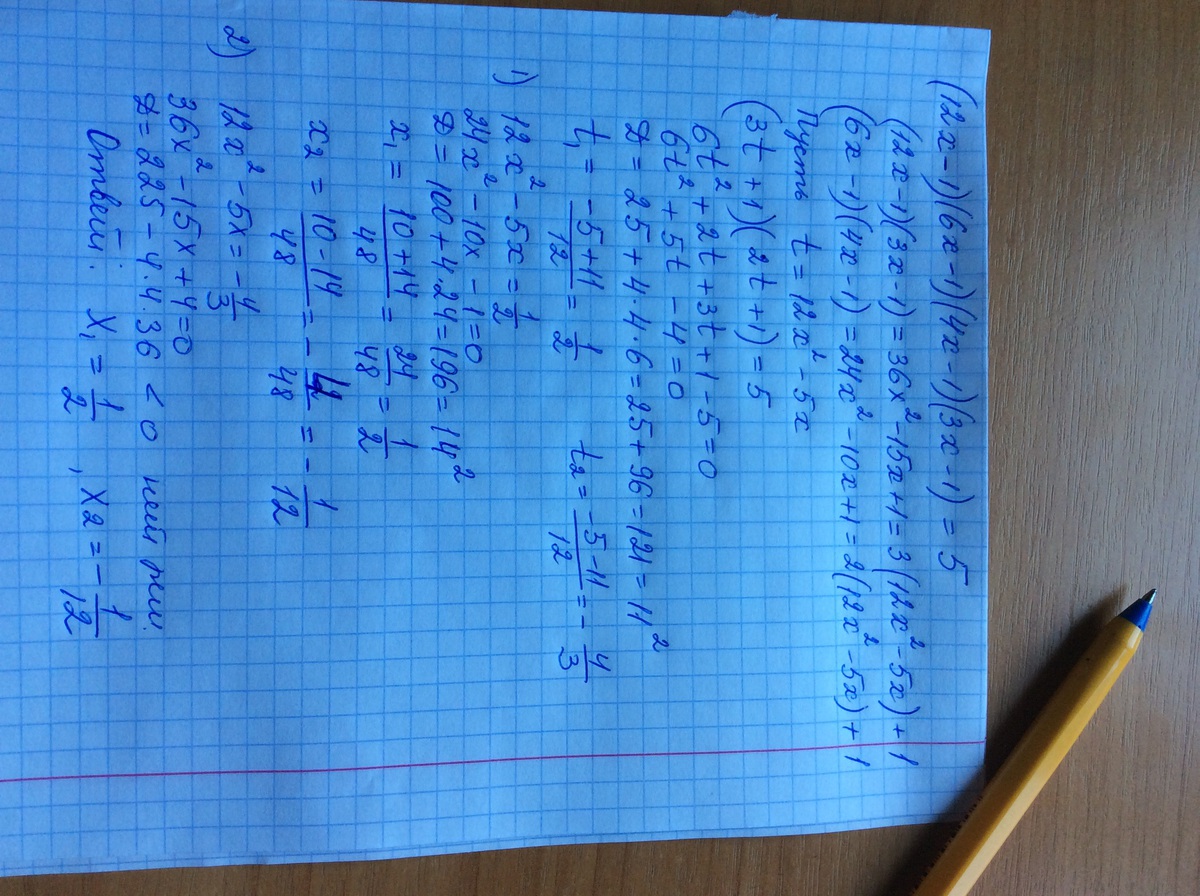 (12x-1)(6x-1)(4x-1)(3x-1) = 5
(12x-1)(3x-1) = 36x²-15x+1 = 3(12x²-5x)+1
(6x-1)(4x-1) = 24x²-10x+1 = 2(12x²-5x)+1
Пусть t = 12x²-5x
(3t+1)(2t+1) = 5
6t²+2t+3t+1-5=0
6t²+5t-4=0
D = 25+4·4·6=25+96=121=11²
t₁ = (-5+11)/12 = 1/2 t₂ = (-5-11)/12 = -4/3
1) 12x²-5x = 1/2
24x²-10x-1=0
D = 100+4·24=196=14²
x₁ = (10+14)/48 = 24/48 = 1/2
x₂ = (10-14)/48 = -4/48 = -1/12
2) 12x²-5x = -4/3
36x²-15x+4=0
D=225-4·4·36 < 0 нет реш.
Ответ: x₁ = 1/2, x₂ = -1/12